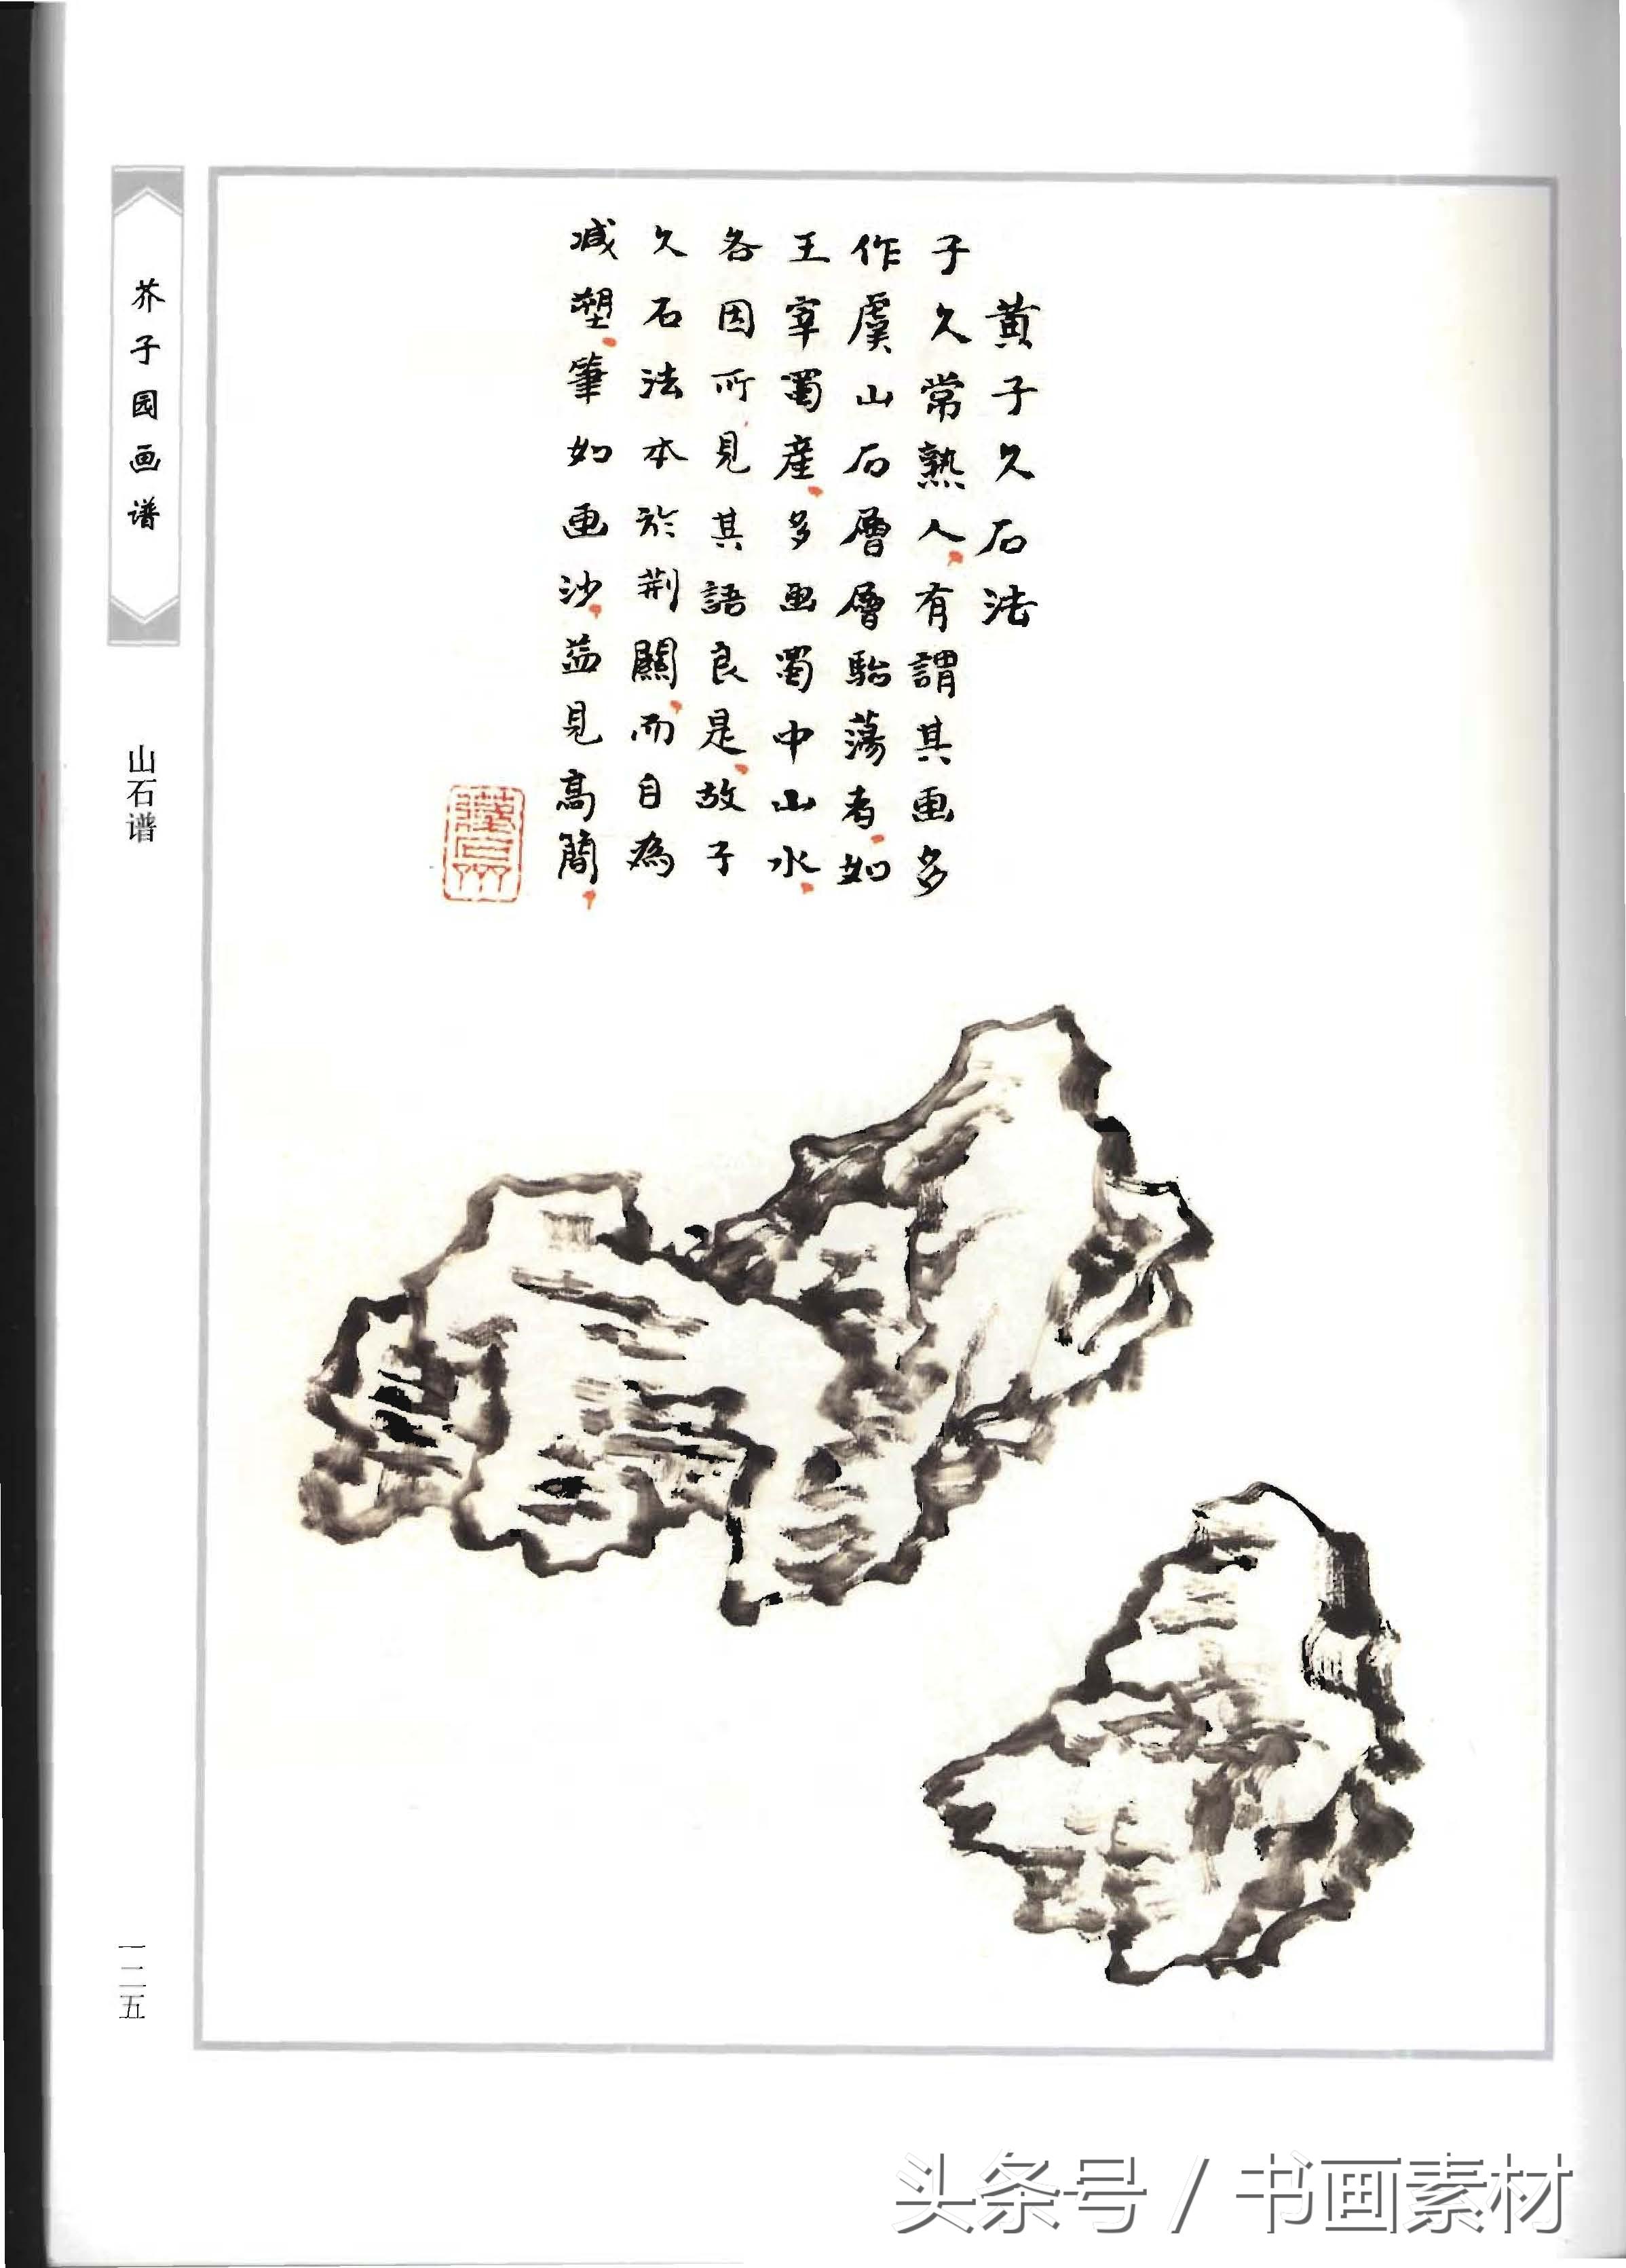 黃子久石法
子久常熟人有謂其畫多
作虞山石層層駘蕩者如
王宰蜀產多畫蜀中山水
各因所見其語良是故子
久石法本於荆關而自為
减塑筆如画沙益見高簡
芥子园画谱
山石谱
一二五
头条号 / 书画素材